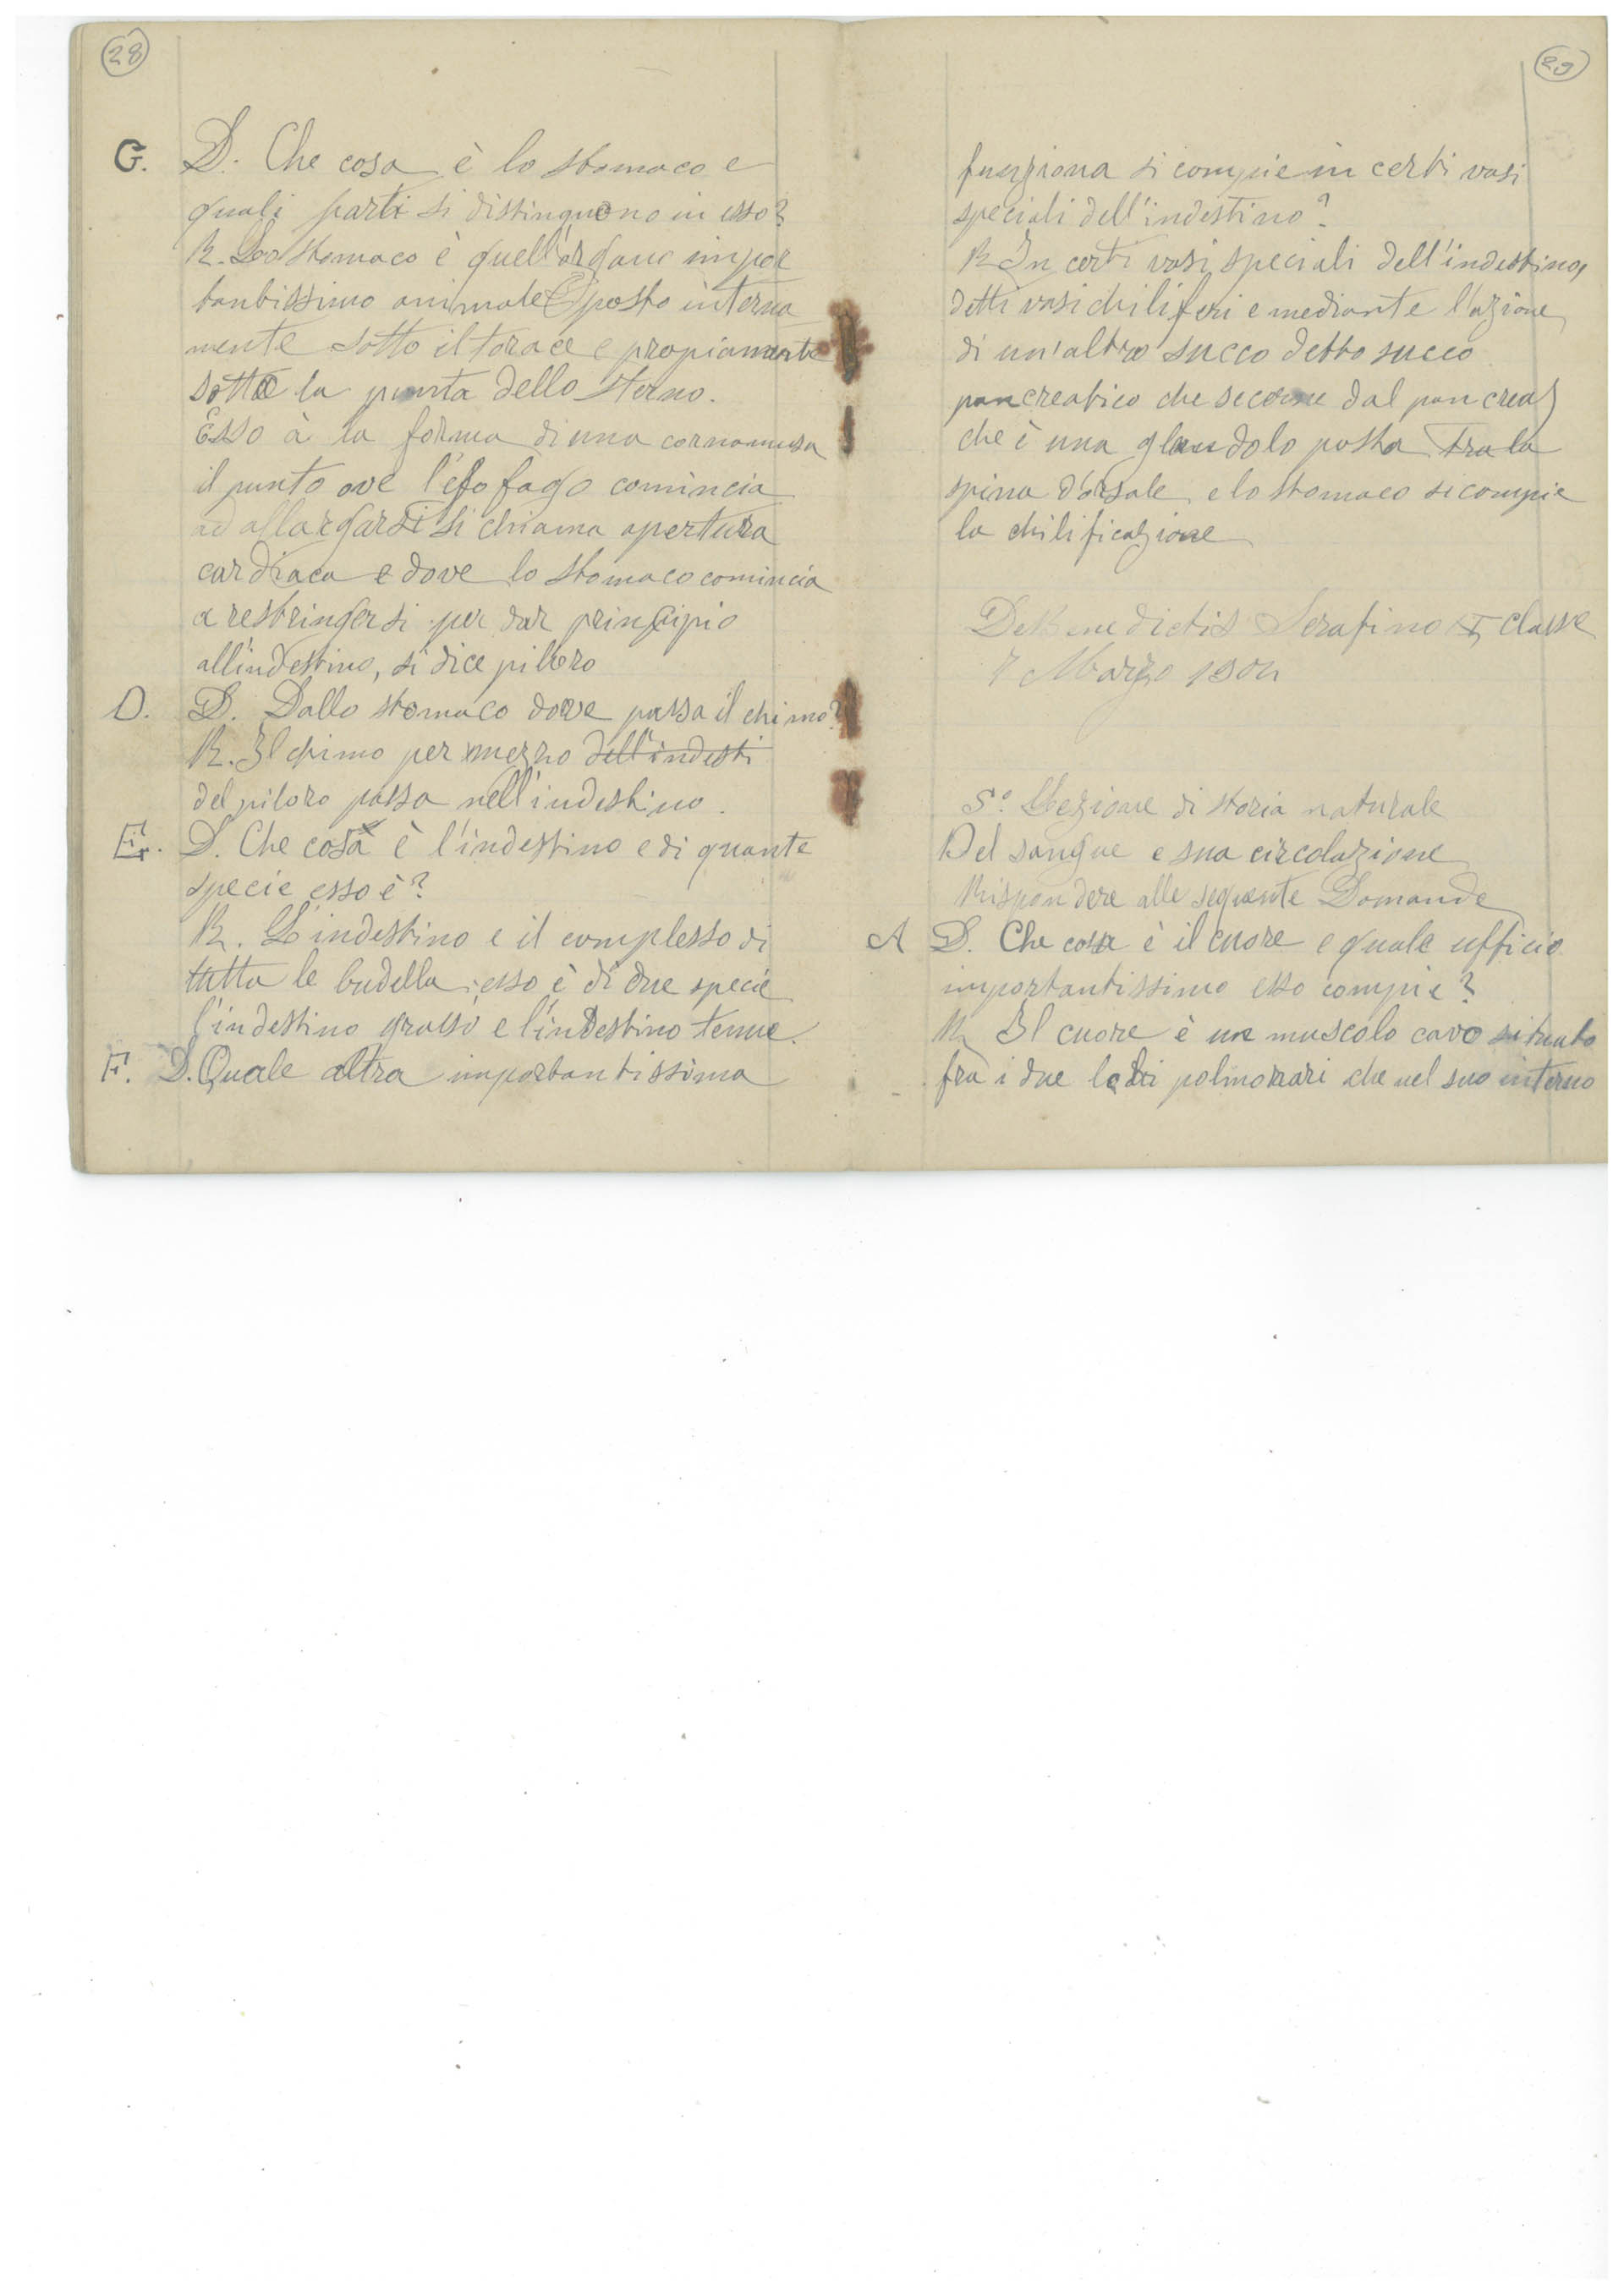 28
G. D. Che cosa è lo stomaco e
quali parti si distinguono in esso?
R. Lo stomaco è quell'organo impor
tantissimo animale posto interna
mente sotto il torace e propiamente
sotto la punta dello sterno.
Esso à la forma di una cornamusa
il punto ove l'esofago comincia
ad allargarsi si chiama apertura
cardiaca e dove lo stomaco comincia
a restringersi per dar principio
all'indestino, si dice piloro
D. D. Dallo stomaco dove passa il chimo?
R. Il chimo per mezzo dell'indesti
del piloro passa nell'indestino.
E. D. Che cosa è l'indestino e di quante
specie esso è?
R. L'indestino e il complesso di
tutta le budella; esso è di due specie
l'indestino grosso e l'indestino tenue.
F. D. Quale altra importantissima
29
funziona si compie in certi vasi
speciali dell'indestino?
R In certi vasi speciali dell'indestino,
detti vasi chiliferi e mediante l'azione
di un'altro succo detto succo
pancreatico che secerne dal pancreas
che è una glandolo posta tra la
spina dorsale e lo stomaco si compie
la chilificazione
De Benedictis Serafino I classe
7 Marzo 1904
5° Lezione di storia naturale
Del sangue e sua circolazione
Rispondere alle seguente Domande
A D. Che cosa è il cuore e quale ufficio
importantissimo esso compie?
R Il cuore è un muscolo cavo situato
fra i due lobi polmonari che nel suo interno